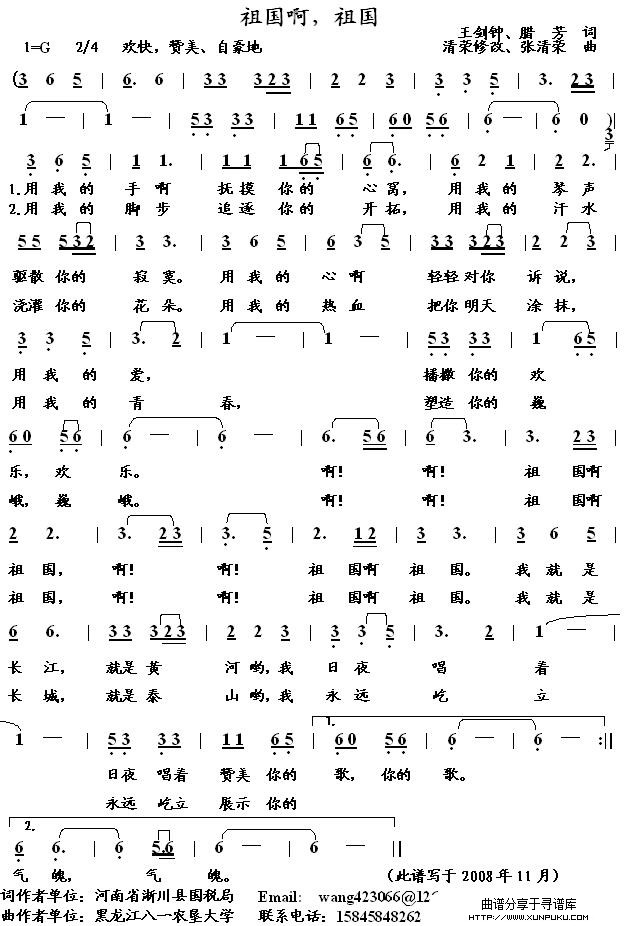 祖国啊，祖国
王剑钟、腊 芳 词
1=G 2/4 欢快，赞美、自豪地 清荣修改、张清荣 曲
(3 6 5 | 6. 6 | 33 323 | 2 2 | 3 3 5 | 3. 23 |
1 — | 1 — | 53 33 | 11 65 | 60 56 | 6 — | 6 0 )| 3
3 6 5 | 1 1. | 1 1 165 | 6 6. | 6 2 1 | 2 2. |
1.用我的 手啊 抚摸你的 心窝， 用我的 琴声
2.用我的 脚步 追逐你的 开拓， 用我的 汗水
55 532 | 3 3. | 3 6 5 | 6 3 5 | 33 323 | 2 2 3 |
驱散你的 寂寞。 用我的 心啊 轻轻对你 诉说，
浇灌你的 花朵。 用我的 热血 把你明天 涂抹，
3 3 5 | 3. 2 | 1 — | 1 — | 53 33 | 1 65 |
用我的 爱， 播撒你的 欢
用我的 青 春， 塑造你的 巍
60 56 | 6 — | 6 — | 6. 56 | 6 3. | 3. 23 |
乐，欢 乐。 啊！ 啊！ 祖国啊
峨，巍 峨。 啊！ 啊！ 祖国啊
2 2. | 3. 23 | 3. 5 | 2. 12 | 3 3. | 3 6 5 |
祖国， 啊！ 啊！ 祖国啊 祖国。 我就是
祖国， 啊！ 啊！ 祖国啊 祖国。 我就是
6 6. | 33 323 | 2 2 3 | 3 3 5 | 3. 2 | 1 — |
长江， 就是黄 河哟，我 日夜 唱 着
长城， 就是泰 山哟，我 永远 屹 立
1 — | 53 33 | 11 65 | 1. 60 56 | 6 — | 6 — :||
日夜 唱着 赞美 你的 歌，你的 歌。
永远 屹立 展示 你的
2.
6 6. | 6 5.6 | 6 — | 6 — ||
气 魄， 气 魄。 （此谱写于2008年11月）
词作者单位：河南省淅川县国税局 Email: wang423066@126
曲作者单位：黑龙江八一农垦大学 联系电话：15845848262
曲谱分享于寻谱库
HTTP://WWW.XUNPUKU.COM